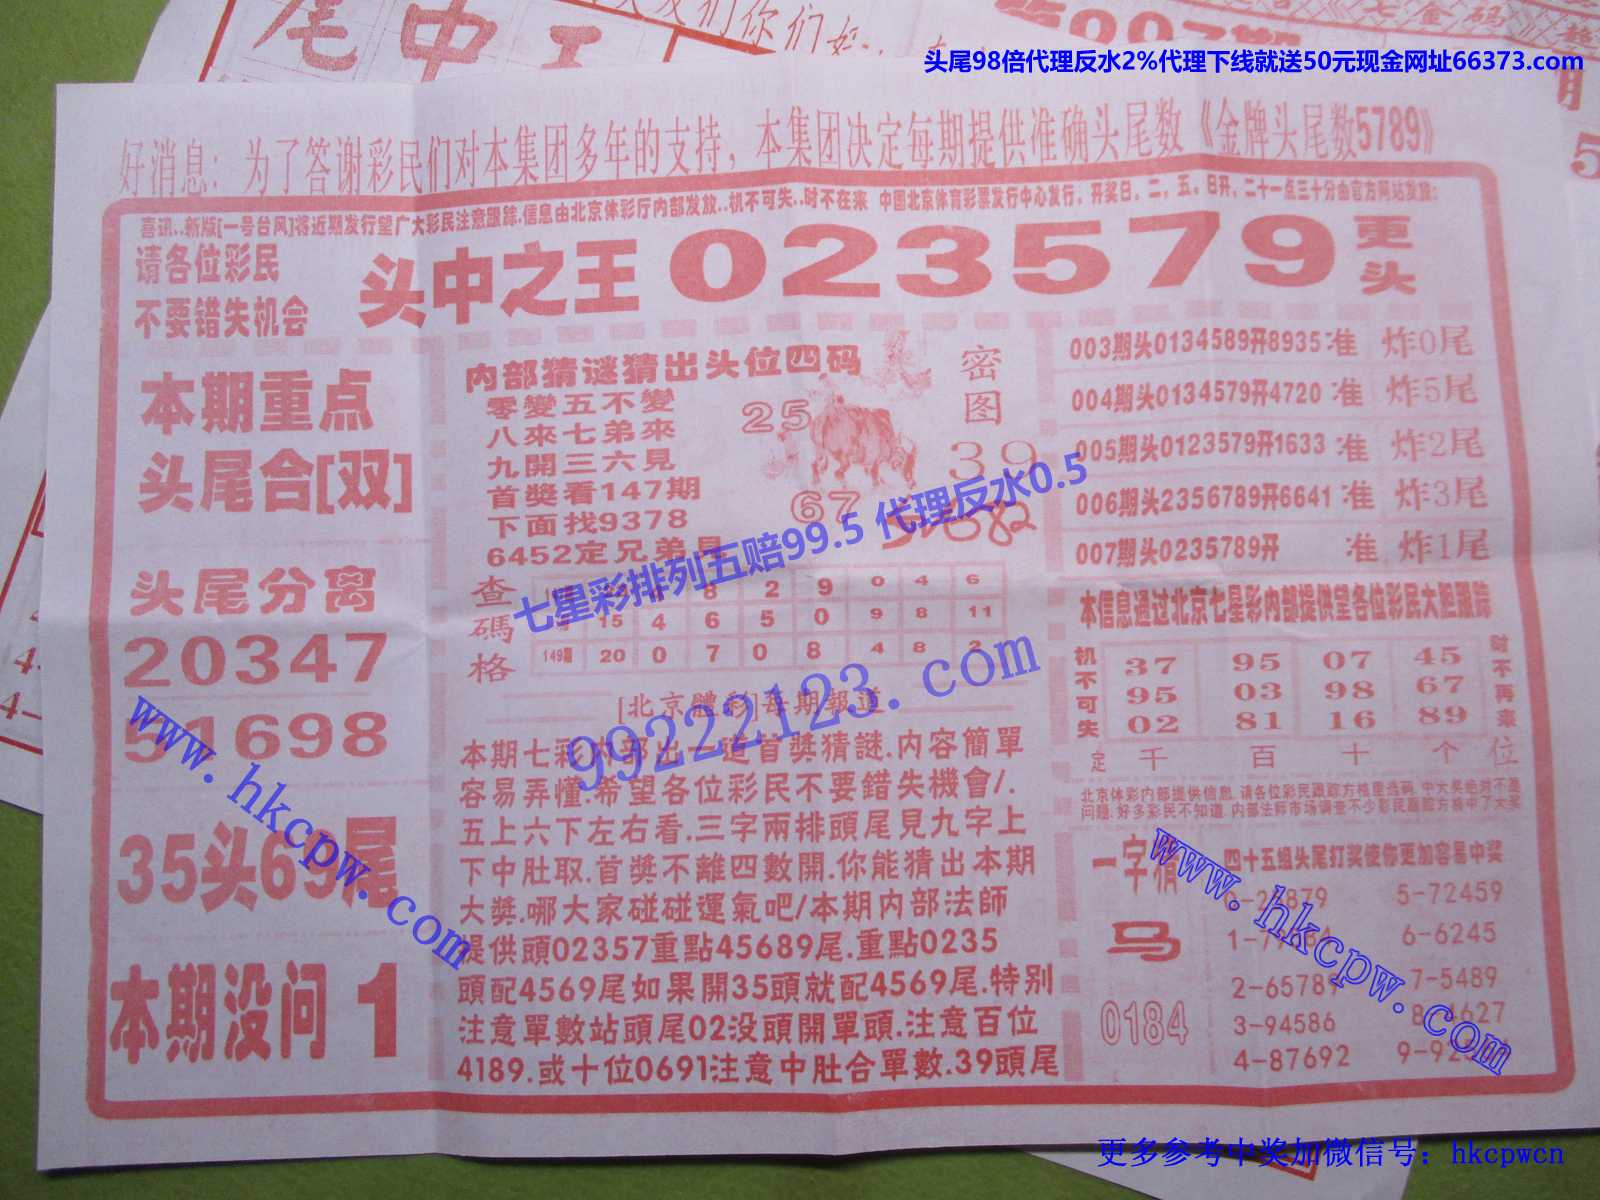 头尾98倍代理反水2%代理下线就送50元现金网址66373.com
好消息：为了答谢彩民们对本集团多年的支持，本集团决定每期提供准确头尾数《金牌头尾数5789》
喜讯..新版[一号台风]将近期发行望广大彩民注意跟踪.信息由北京体彩厅内部发放..机不可失..时不在来 中国北京体育彩票发行中心发行，开奖日，二，五，日开，二十一点三十分由官方网站发放：
请各位彩民
不要错失机会
头中之王 023579 更头
本期重点
头尾合[双]
头尾分离
20347
51698
35头69尾
本期没问 1
内部猜谜猜出头位四码
零變五不變
八來七弟來
九開三六見
首獎看147期
下面找9378
6452定兄弟見
密图
25
39
67
查碼格
8 2 9 0 4 6
15 4 6 5 0 9 8 11
149期 20 0 7 0 8 4 8 2
[北京體彩]每期報道
本期七彩内部出一道首獎猜謎.内容簡單
容易弄懂.希望各位彩民不要錯失機會/.
五上六下左右看.三字兩排頭尾見九字上
下中肚取.首獎不離四數開.你能猜出本期
大獎.哪大家碰碰運氣吧/本期内部法師
提供頭02357重點45689尾.重點0235
頭配4569尾如果開35頭就配4569尾.特别
注意單數站頭尾02没頭開單頭.注意百位
4189.或十位0691注意中肚合單數.39頭尾
003期头0134589开8935准 炸0尾
004期头0134579开4720准 炸5尾
005期头0123579开1633准 炸2尾
006期头2356789开6641准 炸3尾
007期头0235789开 准 炸1尾
本信息通过北京七星彩内部提供望各位彩民大胆跟踪
机不可失
37 95 07 45
95 03 98 67
02 81 16 89
时不再来
定 千 百 十 个 位
北京体彩内部提供信息.请各位彩民跟踪方格重选码.中大奖绝对不是
问题.好多彩民不知道.内部法师市场调查不少彩民跟踪方格中了大奖
一字猜
马
0184
四十五组头尾打奖使你更加容易中奖
5-72459
6-6245
2-65789 7-5489
3-94586
4-87692
七星彩排列五赔99.5 代理反水0.5
99222123.com
www.hkcpw.com
www.hkcpw.com
更多参考中奖加微信号：hkcpwcn